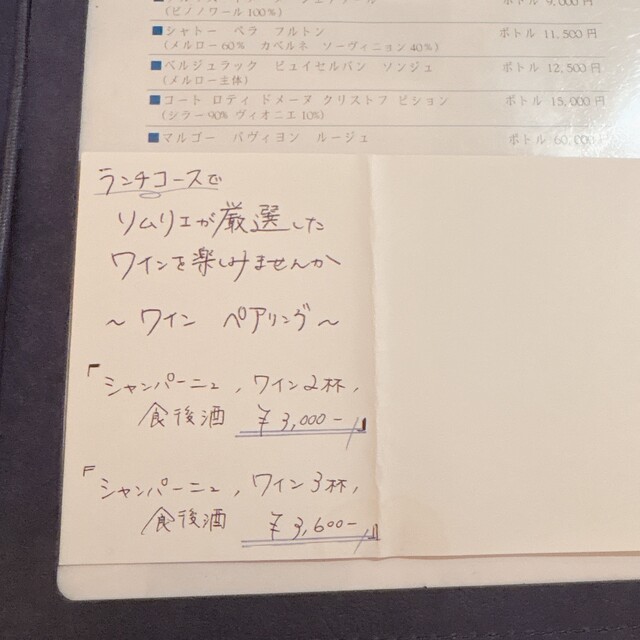 (ピノノワール100%)
ボトル 9,000円
■シャトー ペラ フルトン ボトル 11,500円
(メルロー60% カベルネ ソーヴィニョン40%)
■ベルジェラック ピュイセルバン ソンジュ ボトル 12,500円
(メルロー主体)
■コート ロティ ドメーヌ クリストフ ピション ボトル 15,000円
(シラー90% ヴィオニエ10%)
■マルゴー パヴィヨン ルージュ ボトル 60,000円
ランチコースで
ソムリエが厳選した
ワインを楽しみませんか
～ワイン ペアリング～
「シャンパーニュ, ワイン2杯,
食後酒 ¥3,000-」
「シャンパーニュ, ワイン3杯,
食後酒 ¥3,600-」